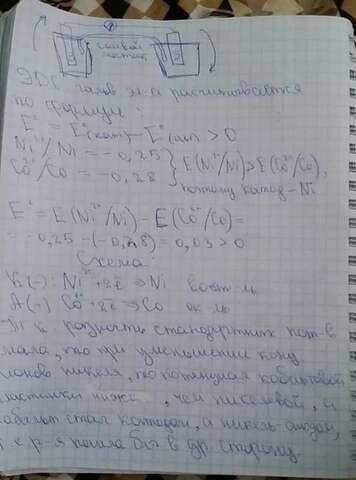 солевой
мостик
ЭДС гальв эл-а рассчитывается
по формуле:
E° = E°(кат) − E°(ан) > 0
Ni²⁺/Ni = −0,25
Co²⁺/Co = −0,28
E(Ni²⁺/Ni) > E(Co²⁺/Co),
поэтому катод − Ni
E° = E(Ni²⁺/Ni) − E(Co²⁺/Co) =
= −0,25 − (−0,28) = 0,03 > 0
Схема:
Ni²⁺ + 2ē ⇒ Ni
Co²⁺ + 2ē ⇒ Co
Т к разность стандартных пот-в
мала, то при уменьшении конц
ионов никеля, то потенциал кобальтовой
пластинки ниже, чем никелевой, и
кобальт стал катодом, а никель-анодом,
т е р-я пошла бы в др. сторону.